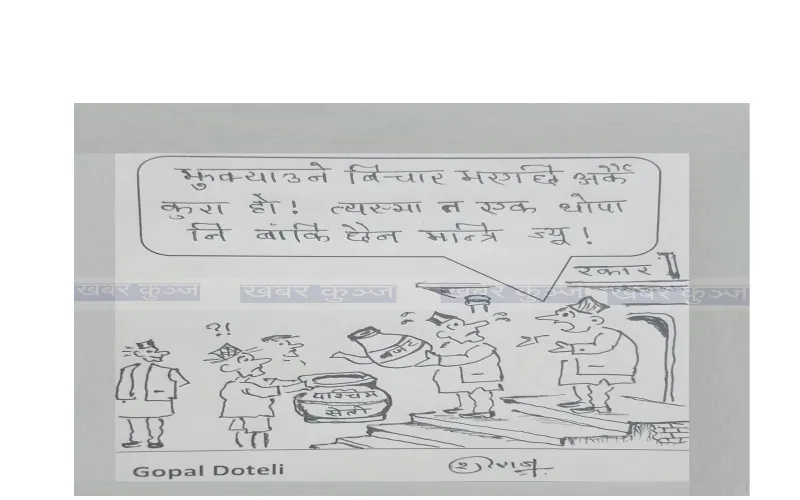 झुक्याउने बिचार भएपछि अर्कै
कुरा हो! त्यस्मा त एक थोपा
नि बाँकि छैन मान्त्रि ज्यू!
रकार
खबर कुञ्ज खबर कुञ्ज खबर कुञ्ज खबर कुञ्ज
?!
बजेट
पश्चिम
सेती
Gopal Doteli